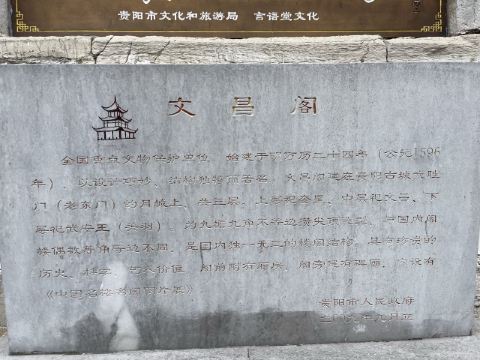 贵阳市文化和旅游局 言语堂文化
文昌阁
全国重点文物保护单位，始建于明万历二十四年（公元1596
年），以设计巧妙、结构独特而著名。文昌阁建在贵阳古城武胜
门（老东门）的月城上，共三层，上层祀奎星、中层祀文昌、下
层祀武安王（关羽）。为九角不等边攒尖顶，与国内阁
楼偶数等角等边不同，是国内独一无二的楼阁结构，具有珍贵的
历史、科学、艺术价值。阁前附有厢房，阁旁
《中国名楼名阁图片展》
贵阳市人民政府
九月立